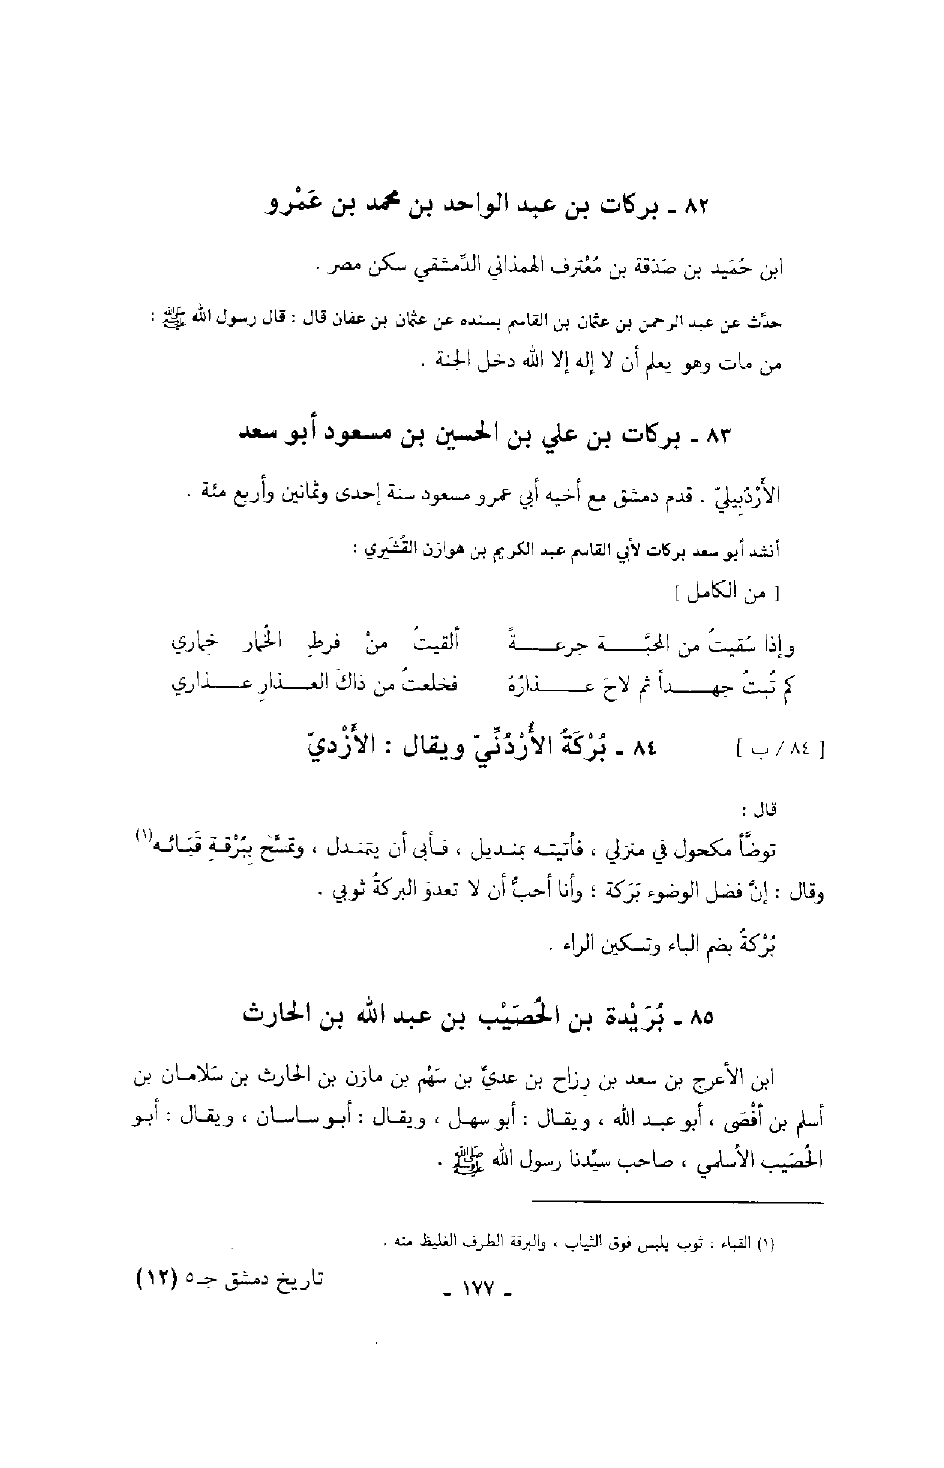 ٨٢ ـ بركات بن عبد الواحد بن محمد بن عَمْرو
ابن حُمَيد بن صَدَقة بن مُعْترف الهمذاني الدِّمشقي سكن مصر .
حدَّث عن عبد الرحمن بن عثمان بن القاسم بسنده عن عثمان بن عفان قال : قال رسول الله ﷺ :
من مات وهو يعلم أن لا إله إلا الله دخل الجنة .
٨٣ ـ بركات بن علي بن الحسين بن مسعود أبو سعد
الأَرْدَبيليّ . قدم دمشق مع أخيه أبي عمرو مسعود سنة إحدى وثمانين وأربع مئة .
أنشد أبو سعد بركات لأبي القاسم عبد الكريم بن هوازن القُشَيري :
[ من الكامل ]
وإذا سُقيتُ من المحبَّـــة جرعـــةً ألقيتُ منْ فرطِ الخُمار خماري
كم تُبتُ جهـــداً ثم لاحَ عـــذارُهُ فخلعتُ من ذاكَ العـــذارِ عـــذاري
[ ٨٤ / ب ] ٨٤ ـ بُرْكَةُ الأُرْدُنِّيّ ويقال : الأَزْديّ
قال :
توضَّأ مكحول في منزلي ، فأتيته بمنديل ، فأبى أن يتمندل ، وتمسَّح بِبُرْقةِ قَبَائه(١)
وقال : إنَّ فضل الوضوء بَرَكة ؛ وأنا أحبُّ أن لا تعدوَ البركةُ ثوبي .
بُرْكةُ بضم الباء وتسكين الراء .
٨٥ ـ بُرَيْدة بن الحُصَيْب بن عبد الله بن الحارث
ابن الأعرج بن سعد بن رِزاح بن عديّ بن سَهْم بن مازن بن الحارث بن سَلامان بن
أسلم بن أَفْصَى ، أبو عبد الله ، ويقال : أبو سهل ، ويقال : أبو ساسان ، ويقال : أبو
الحُصَيب الأسلمي ، صاحب سيِّدنا رسول الله ﷺ .
(١) القباء : ثوب يلبس فوق الثياب ، والبرقة الطرف الغليظ منه .
ـ ١٧٧ ـ تاريخ دمشق جـ٥ (١٢)